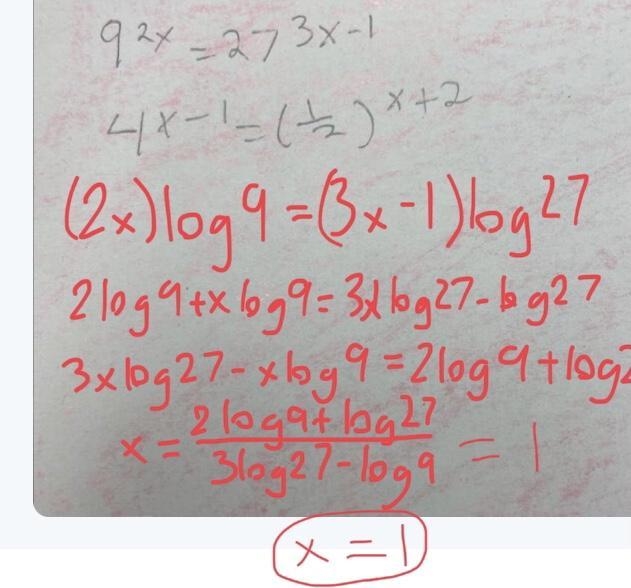 9^{2x} = 27^{3x-1}
4^{x-1} = (1/2)^{x+2}
(2x)log9 = (3x-1)log27
2log9+xlog9 = 3xlog27-log27
3xlog27-xlog9 = 2log9+log2
x = (2log9+log27)/(3log27-log9) = 1
x = 1